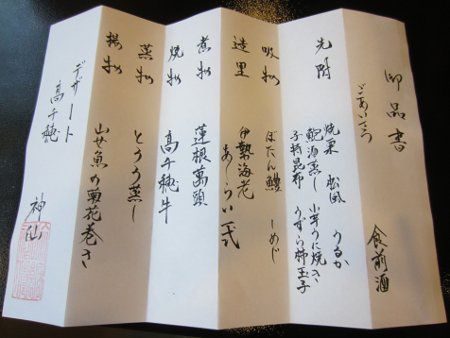 御品書
ごあいさつ
食前酒
先附
焼栗 松風 うるか
鮑酒蒸し 小芋うに焼き
子持昆布 うずら柿玉子
吸物
ぼたん鱧 しめじ
造里
伊勢海老
あしらい一式
煮物
蓮根萬頭
焼物
高千穂牛
蒸物
とうろう蒸し
揚物
山女魚の菊花巻き
デザート
高千穂
神仙